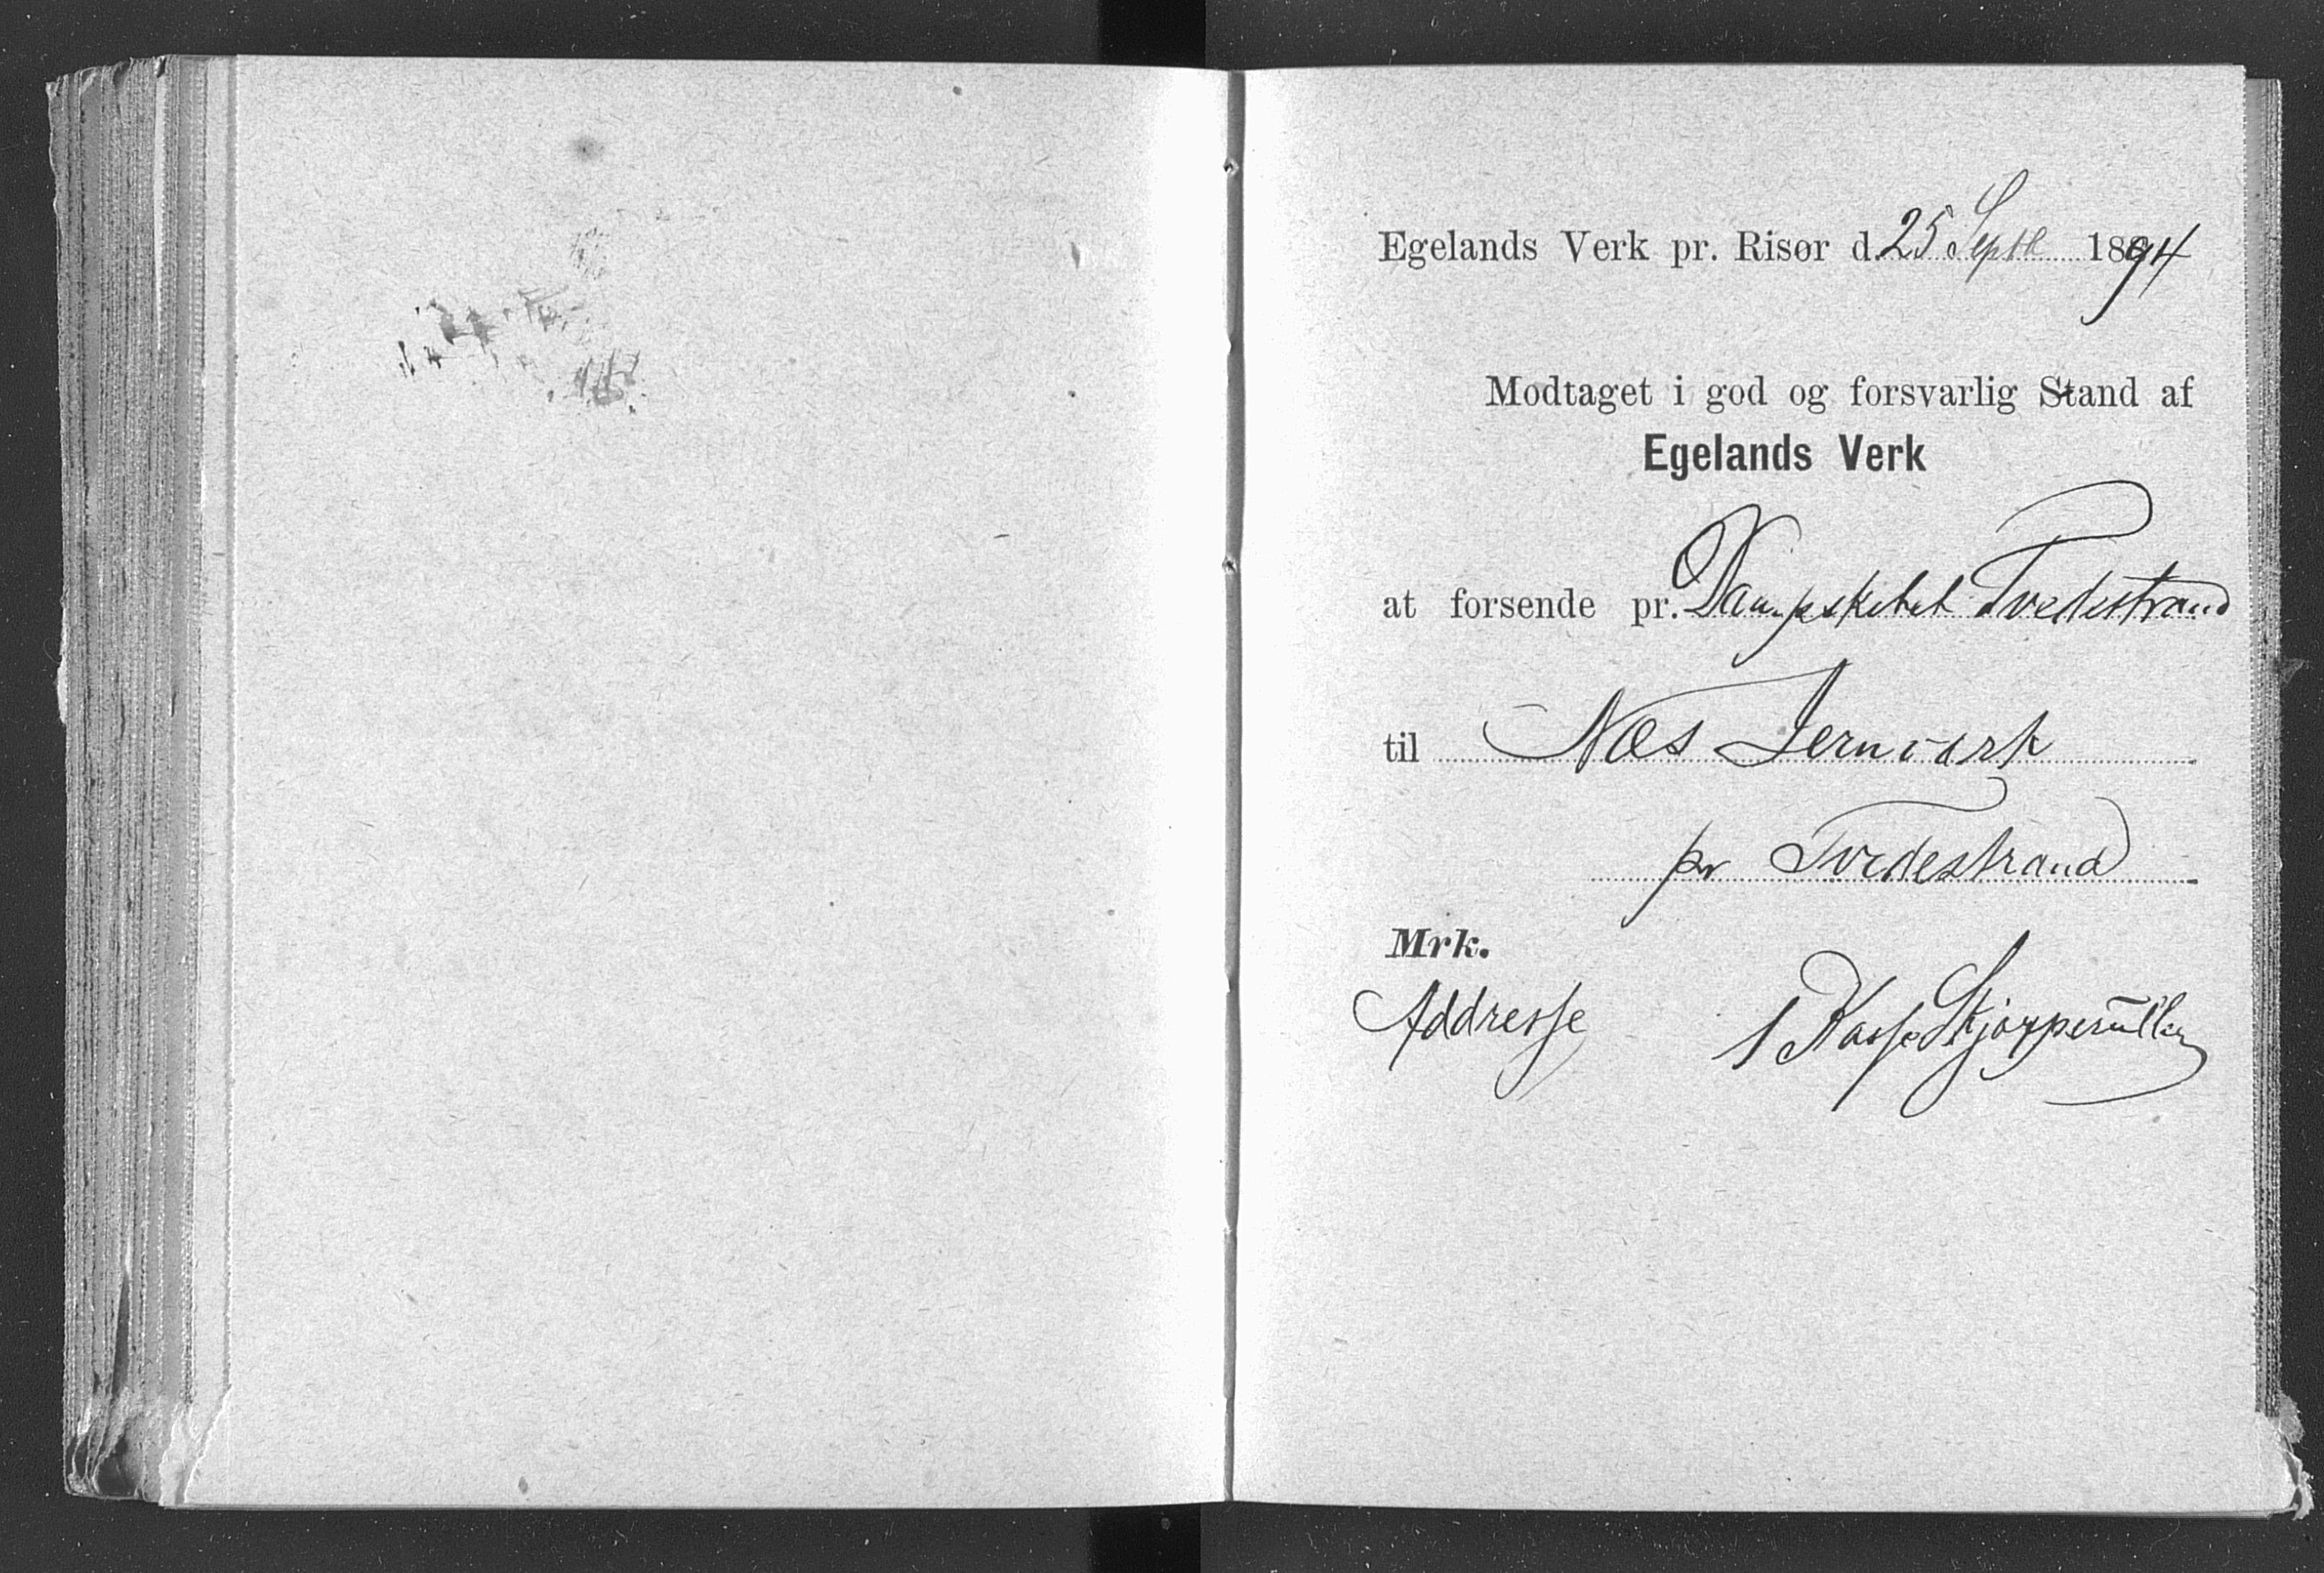 Egelands Verk pr. Risør d. 25 Septb 1894
Modtaget i god og forsvarlig Stand af
Egelands Verk
at forsende pr. Dampskibet Tvedestrand
til Næs Jernværk
pr Tvedestrand
Mrk.
Addresse 1 Kasse